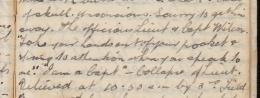 of skill. provisions. Lorry to get in
away. The officious Lieut & Capt Wilson.
"Take your hands out of your pocket &
spring to attention when you speak to
me". "I am a Capt" - Collapse of Lieut.
Relieved at 10.30 pm by 3rd Field